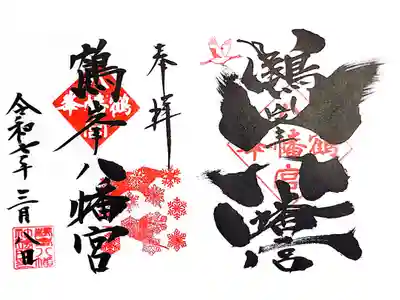 鶴峯八幡宮
奉拝
鶴峯八幡宮
令和七年三月八日